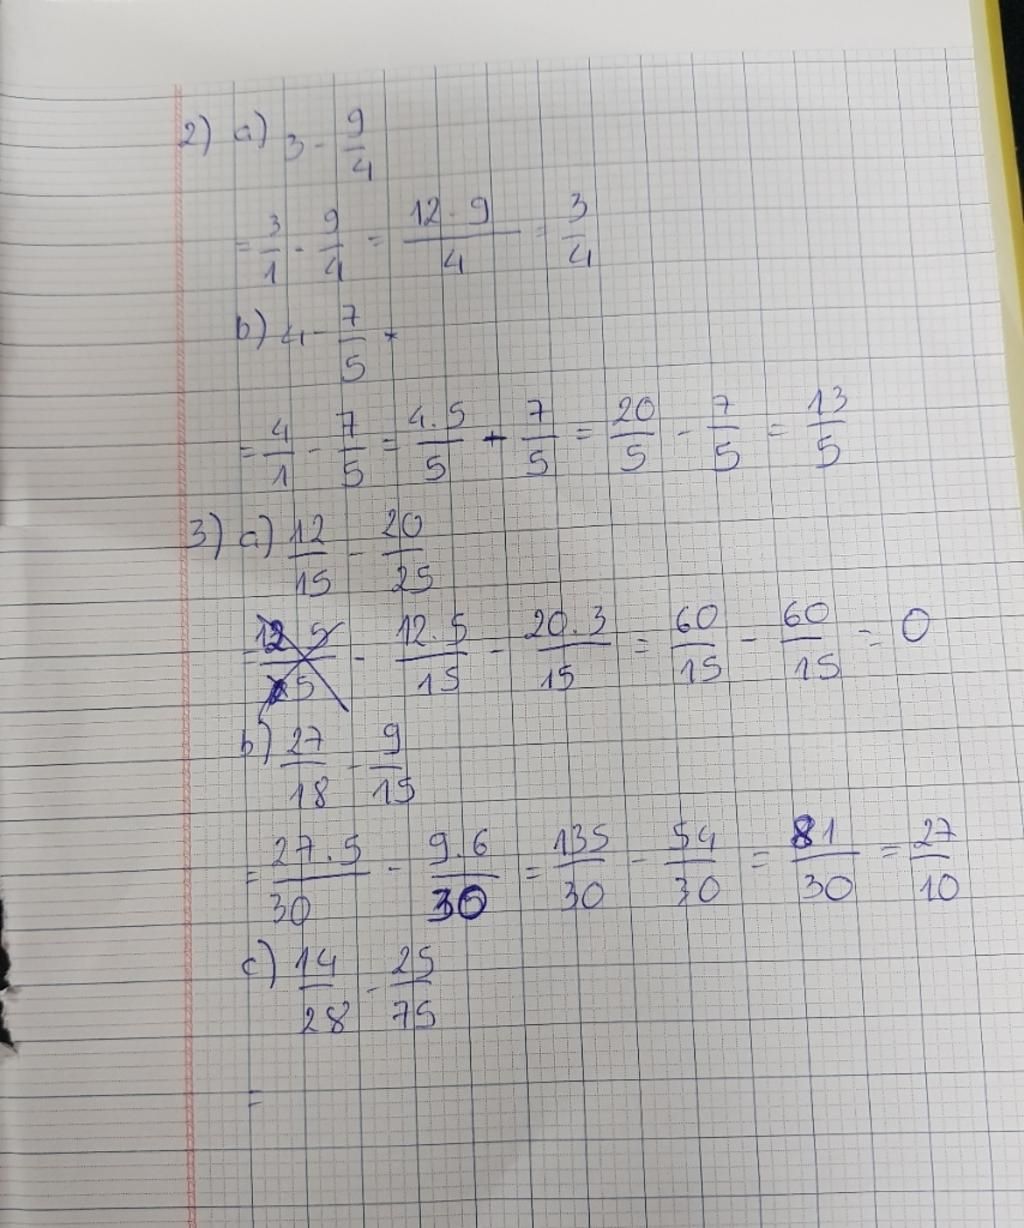 2) a) 3 - 9/4
= 3/1 - 9/4 = 12 - 9/4 = 3/4
b) 4 - 7/5
= 4/1 - 7/5 = 4.5/5 + 7/5 = 20/5 - 7/5 = 13/5
3) a) 12/15 - 20/25
= - 12.5/15 - 20.3/15 = 60/15 - 60/15 = 0
b) 27/18 - 9/15
= 27.5/30 - 9.6/30 = 135/30 - 54/30 = 81/30 = 27/10
c) 14/28 - 25/75
=